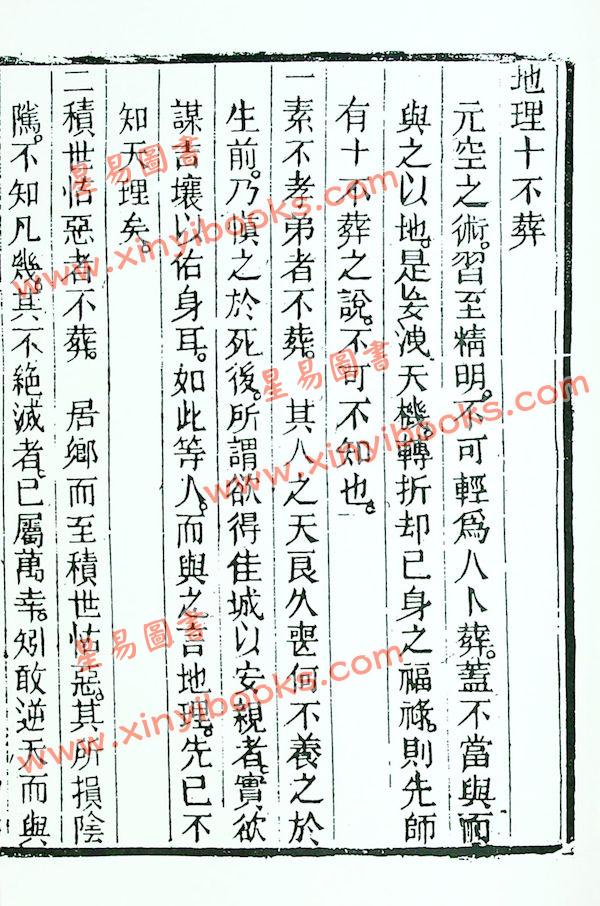 地理十不葬
元空之術。習至精明。不可輕為人卜葬。蓋不當與而
與之以地。是妄洩天機。轉折却已身之福祿。則先師
有十不葬之說。不可不知也。
一素不孝弟者不葬。 其人之天良久喪何不養之於
生前。乃慎之於死後。所謂欲得佳城以安親者。實欲
謀吉壤以佑身耳。如此等人。而與之言地理。先已不
知天理矣。
二積世怙惡者不葬。 居鄉而至積世怙惡。其所損陰
隲。不知凡幾。其不絕滅者。已屬萬幸。矧敢逆天而與
星易圖書
www.xinyibooks.com
星易圖書
www.xinyibooks.com
星易圖書
www.xinyibooks.com